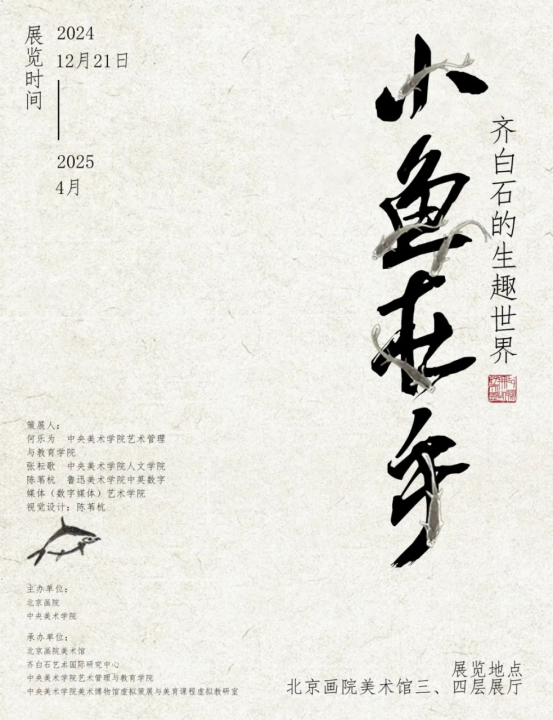 展览时间
2024
12月21日
2025
4月
小鱼在乎
齐白石的生趣世界
策展人：
何乐为 中央美术学院艺术管理
与教育学院
张耘歌 中央美术学院人文学院
陈茗杭 鲁迅美术学院中英数字
媒体（数字媒体）艺术学院
视觉设计：陈茗杭
主办单位：
北京画院
中央美术学院
承办单位：
北京画院美术馆
齐白石艺术国际研究中心
中央美术学院艺术管理与教育学院
中央美术学院美术博物馆虚拟策展与美育课程虚拟教研室
展览地点
北京画院美术馆三、四层展厅